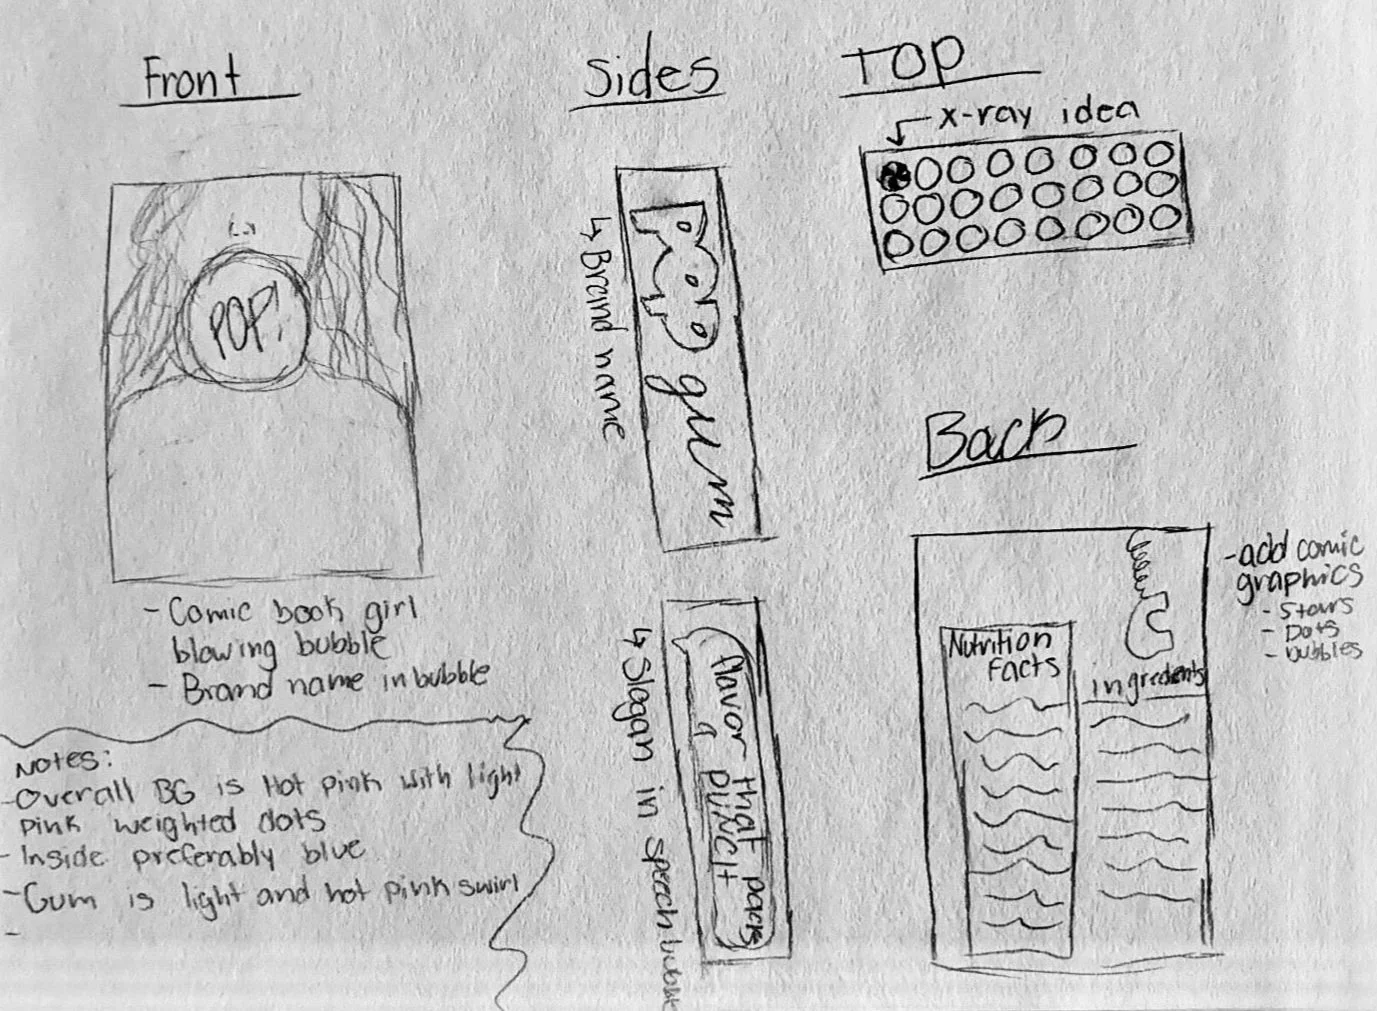 Front
POP!
- Comic book girl
blowing bubble
- Brand name in bubble
Notes:
- Overall BG is Hot pink with light
pink weighted dots
- Inside preferably blue
- Gum is light and hot pink swirl
-
Sides
POP gum
↳ Brand name
flavor that packs
a PUNCH
↳ Slogan in speech bubble
TOP
x-ray idea
Back
Nutrition
Facts
ingredents
- add comic
graphics
- Stars
- Dots
- bubbles